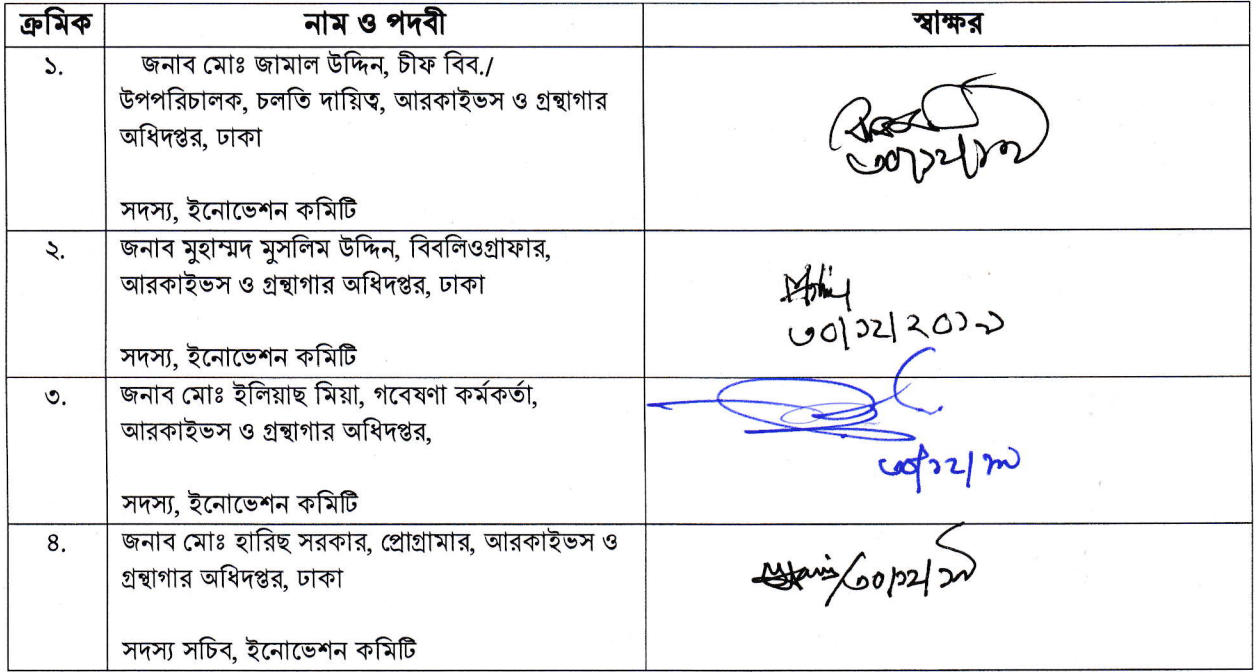 ক্রমিক নাম ও পদবী স্বাক্ষর
১. জনাব মোঃ জামাল উদ্দিন, চীফ বিব./
উপপরিচালক, চলতি দায়িত্ব, আরকাইভস ও গ্রন্থাগার
অধিদপ্তর, ঢাকা
৩০/১২/১৯
সদস্য, ইনোভেশন কমিটি
২. জনাব মুহাম্মদ মুসলিম উদ্দিন, বিবলিওগ্রাফার,
আরকাইভস ও গ্রন্থাগার অধিদপ্তর, ঢাকা
৩০/১২/২০১৯
সদস্য, ইনোভেশন কমিটি
৩. জনাব মোঃ ইলিয়াছ মিয়া, গবেষণা কর্মকর্তা,
আরকাইভস ও গ্রন্থাগার অধিদপ্তর,
৩০/১২/১৯
সদস্য, ইনোভেশন কমিটি
৪. জনাব মোঃ হারিছ সরকার, প্রোগ্রামার, আরকাইভস ও
গ্রন্থাগার অধিদপ্তর, ঢাকা
৩০/১২/১৯
সদস্য সচিব, ইনোভেশন কমিটি